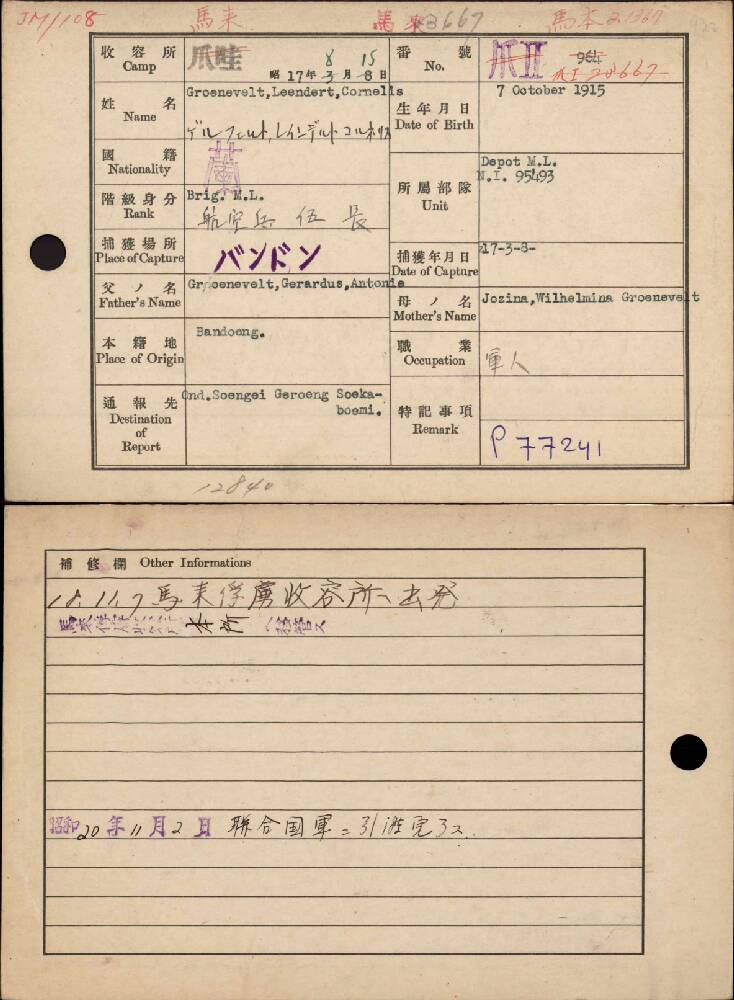 JM/108 馬来 馬来 3667 馬本 21367
收容所 Camp 爪哇 昭17年3月8日 8 15
番號 No. 爪II 964 爪I 20667
姓名 Name Groenevelt,Leendert,Cornelis
生年月日 Date of Birth 7 October 1915
國籍 Nationality 蘭
階級身分 Rank Brig. M.L.
航空兵 伍長
所屬部隊 Unit Depot M.L.
N.I. 95493
捕獲場所 Place of Capture バンドン
捕獲年月日 Date of Capture 17-3-8-
父ノ名 Father's Name Groenevelt,Gerardus,Antonie
母ノ名 Mother's Name Jozina,Wilhelmina Groenevelt
本籍地 Place of Origin Bandoeng.
職業 Occupation 軍人
通報先 Destination of Report Ond.Soengei Geroeng Soeka-
boemi.
特記事項 Remark P 77241
12840
補修欄 Other Informations
18.11.7 馬来俘虜收容所ヘ出発
本所 ヘ移管ス
昭和20年11月2日 聯合国軍ニ引渡完了ス